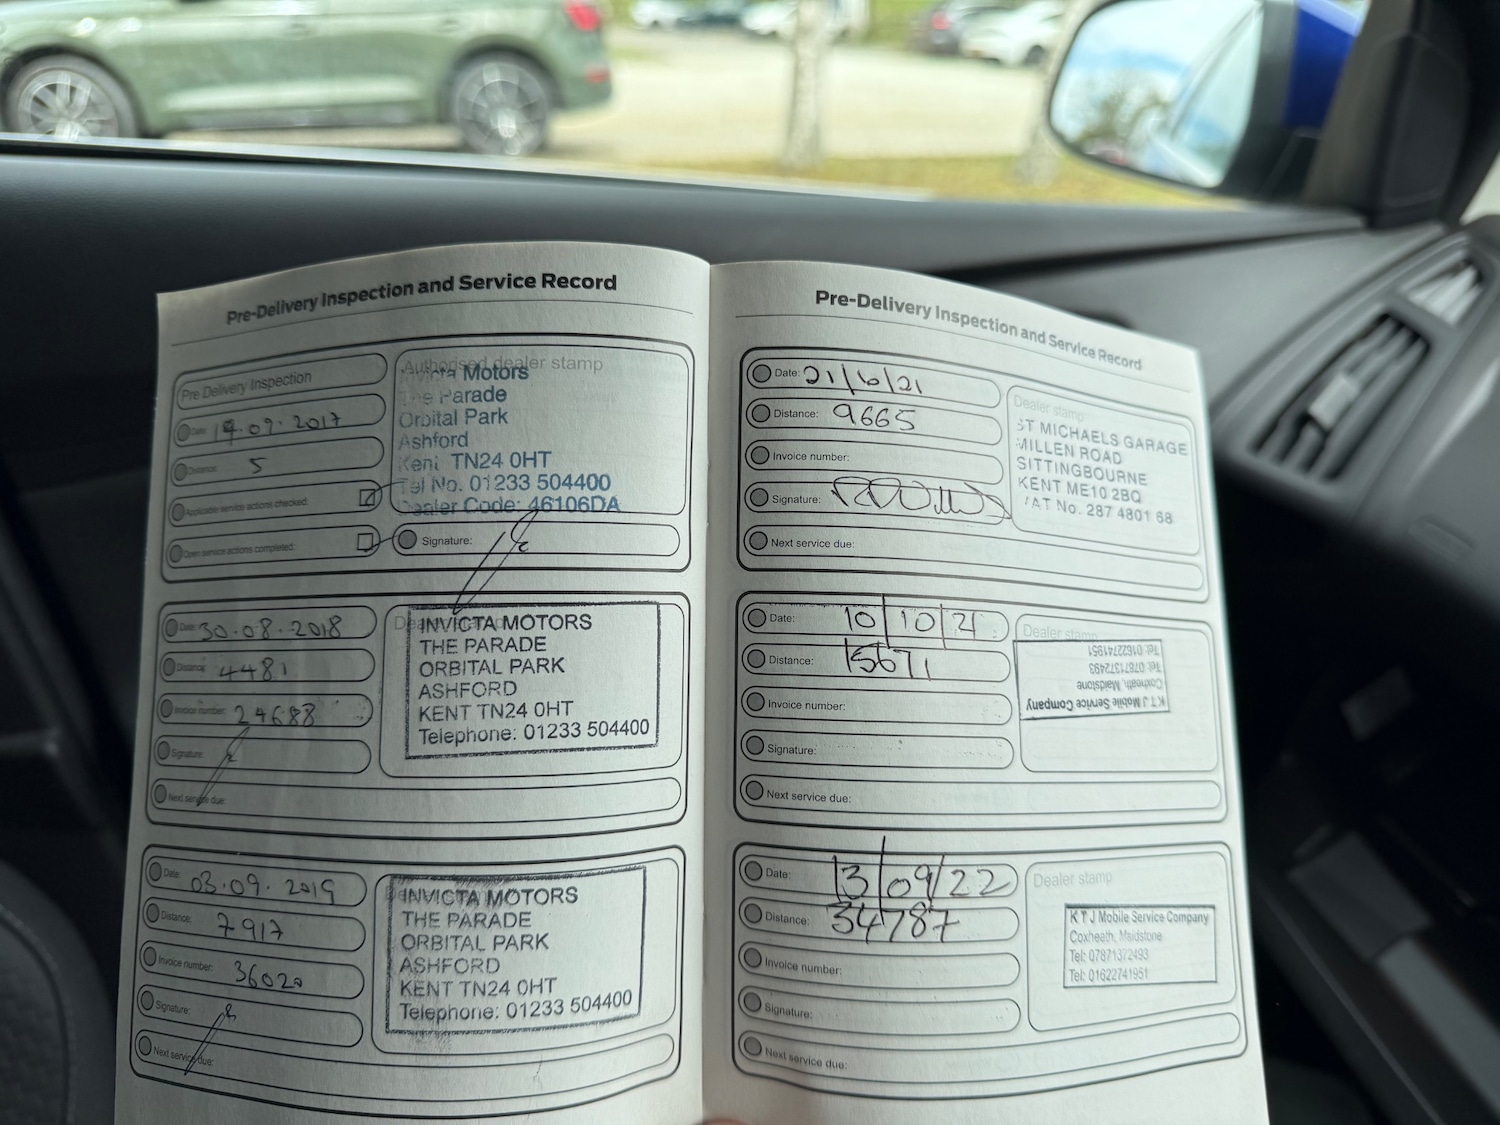 Pre-Delivery Inspection and Service Record
Pre Delivery Inspection
Date: 14.09.2017
Distance: 5
Applicable service actions checked:
Open service actions completed:
Authorised dealer stamp
Motors
Parade
Orbital Park
Ashford
Kent TN24 0HT
Tel No. 01233 504400
Dealer Code: 46106DA
Signature:
Date: 30.08.2018
Distance: 4481
Invoice number: 24688
Signature:
Next service due:
INVICTA MOTORS
THE PARADE
ORBITAL PARK
ASHFORD
KENT TN24 0HT
Telephone: 01233 504400
Date: 03.09.2019
Distance: 7917
Invoice number: 36020
Signature:
Next service due:
INVICTA MOTORS
THE PARADE
ORBITAL PARK
ASHFORD
KENT TN24 0HT
Telephone: 01233 504400
Pre-Delivery Inspection and Service Record
Date: 21/6/21
Distance: 9665
Invoice number:
Signature:
Next service due:
Dealer stamp
ST MICHAELS GARAGE
MILLEN ROAD
SITTINGBOURNE
KENT ME10 2BQ
VAT No. 287 4801 68
Date: 10/10/21
Distance: 15671
Invoice number:
Signature:
Next service due:
Dealer stamp
K T J Mobile Service Company
Coxheath, Maidstone
Tel: 07871372493
Tel: 01622741951
Date: 13/09/22
Distance: 34787
Invoice number:
Signature:
Next service due:
Dealer stamp
K T J Mobile Service Company
Coxheath, Maidstone
Tel: 07871372493
Tel: 01622741951